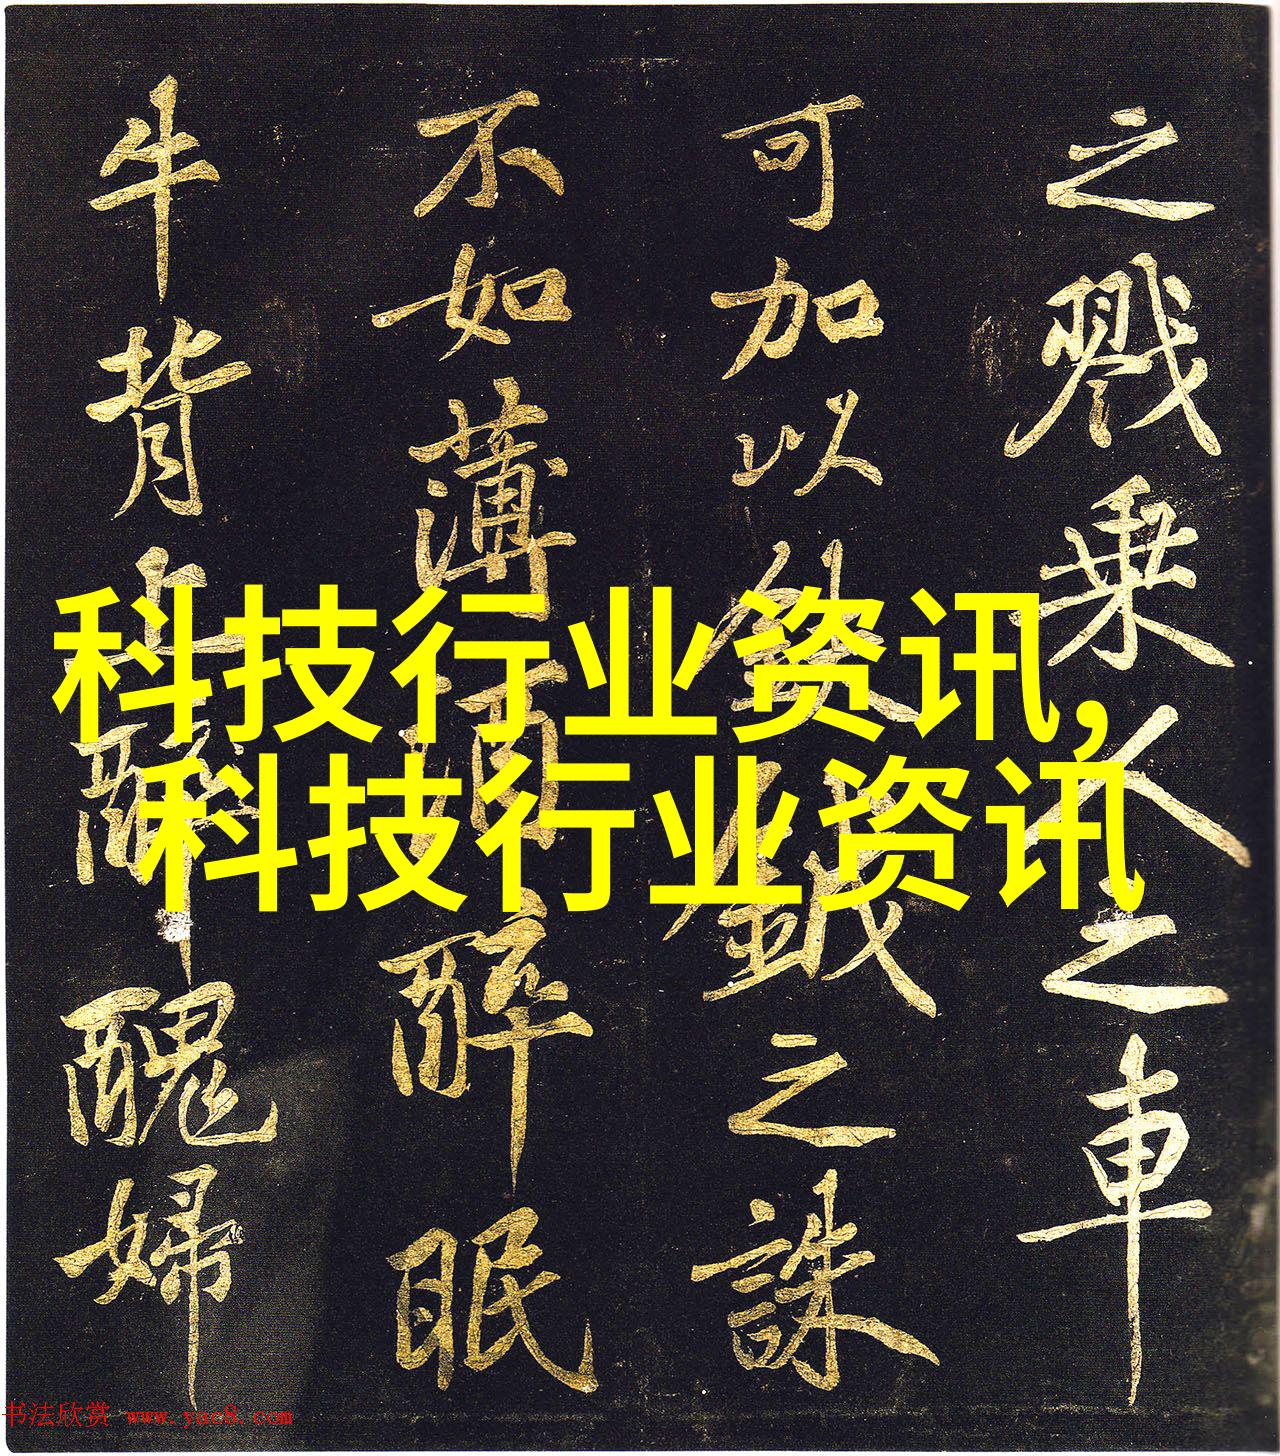 之戮乘人之車
可加以鈇鉞之誅
不如薄酒醉眠
牛背上醜婦
科技行业资讯,
科技行业资讯
书法欣赏 www.yac8.com